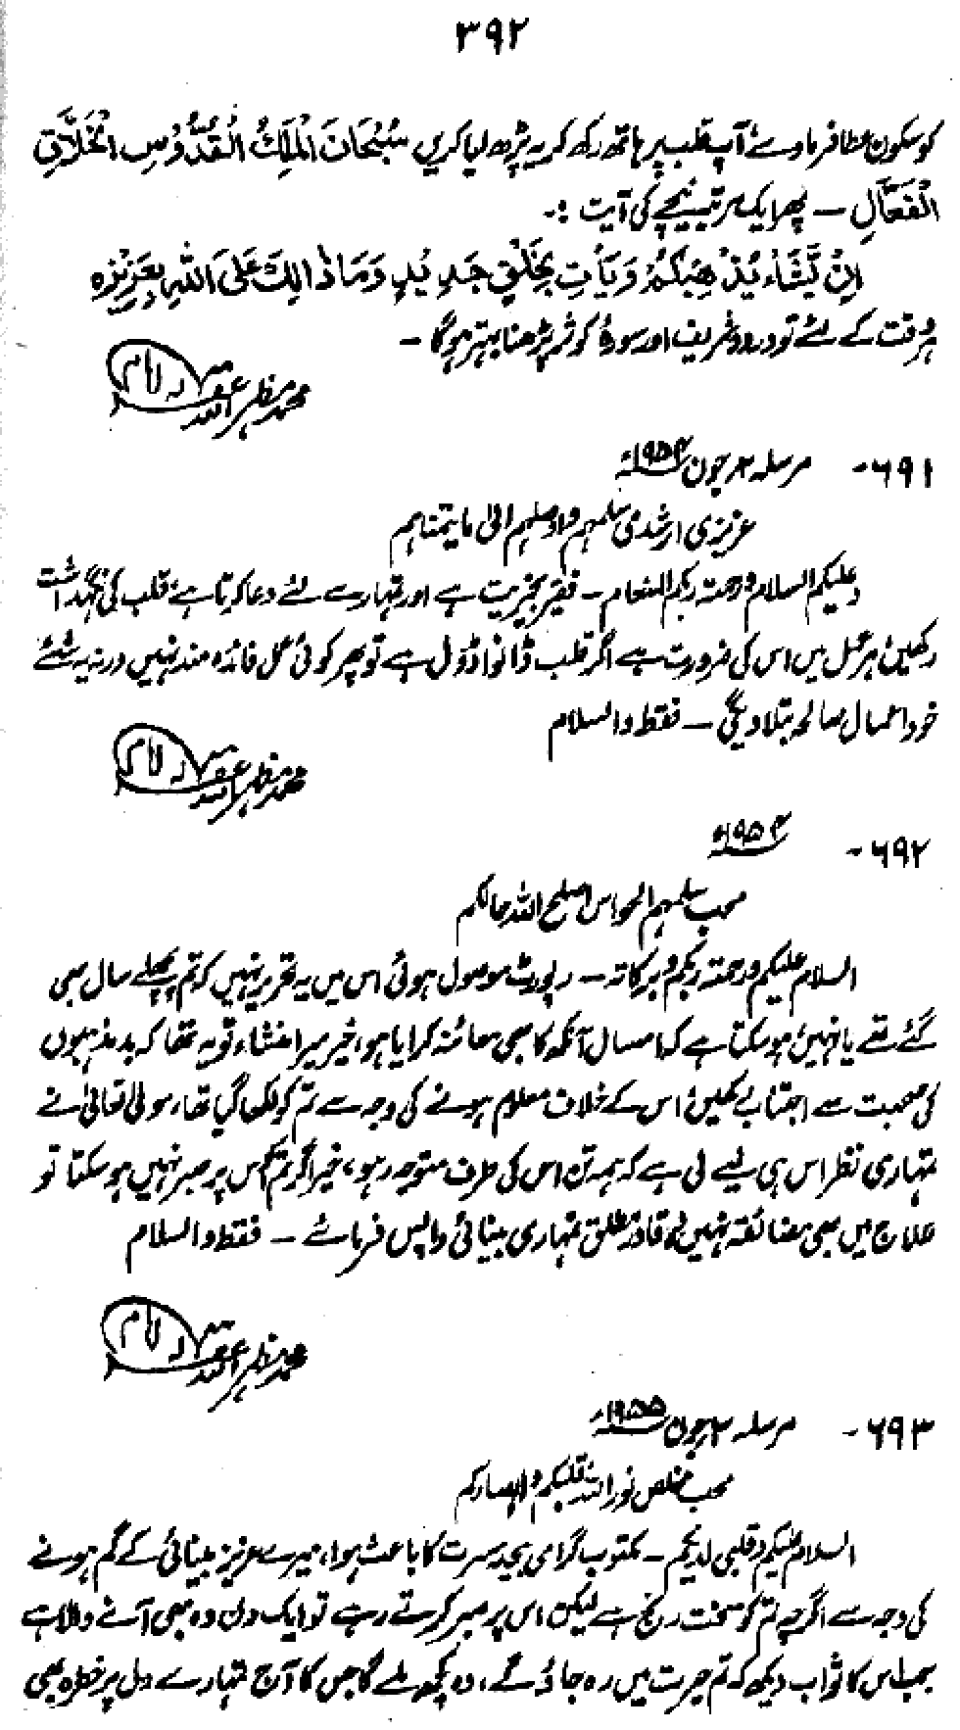 ۳۹۲
کو سکون عطا فرماوے آپ قلب پر ہاتھ رکھ کر یہ پڑھ لیا کریں سُبْحَانَ الْمَلِكِ الْقُدُّوْسِ الْخَلَّاقِ
الْفَعَّالِ — پھر ایک مرتبہ نیچے کی آیت :۔
اِنْ يَّشَاْ يُذْهِبْكُمْ وَيَاْتِ بِخَلْقٍ جَدِيْدٍ وَمَا ذَالِكَ عَلَى اللهِ بِعَزِيْزٍ
ہر وقت کے لئے تو درود شریف اور سورۂ کوثر پڑھنا بہتر ہوگا —
محمد مظہر اللہ
۶۹۱- مرسلہ ۲ر جون ۱۹۵۴ء
عزیزی ارشدی سلمہم واوصلہم الیٰ مایتمناہم
وعلیکم السلام ورحمتہ ربکم المنعام — فقیر بخیریت ہے اور تمہارے لئے دعا کرتا ہے، قلب کی نگہداشت
رکھیں ہر عمل میں اس کی ضرورت ہے اگر قلب ڈانواڈول ہے تو پھر کوئی عمل فائدہ مند نہیں ورنہ یہ شئے
خود اعمال صالحہ بتلا دیگی — فقط والسلام
محمد مظہر اللہ
۶۹۲- ۱۹۵۴ء
محب سلیم الحواس اصلح اللہ حالکم
السلام علیکم ورحمتہ ربکم وبرکاتہ — رپورٹ موصول ہوئی اس میں یہ تحریر نہیں کہ تم پچھلے سال بھی
گئے تھے یا نہیں ہو سکتا ہے کہ امسال آنکھ کا بھی معائنہ کرایا ہو، خیر میرا منشاء تو یہ تھا کہ بد مذہبوں
کی صحبت سے اجتناب رکھیں اس کے خلاف معلوم ہونے کی وجہ سے تم کو لکھا گیا تھا، مولیٰ تعالیٰ نے
تمہاری نظر اس ہی لیے لی ہے کہ ہمہ تن اس کی طرف متوجہ رہو، خیر اگر تم کو اس پر صبر نہیں ہو سکتا تو
علاج میں بھی مضائقہ نہیں قادر مطلق تمہاری بینائی واپس فرمائے — فقط والسلام
محمد مظہر اللہ
۶۹۳- مرسلہ ۲ر جون ۱۹۵۵ء
محب مخلص نور اللہ قلبکم وابصارکم
السلام علیکم وقلبی لدیکم — مکتوب گرامی بیحد مسرت کا باعث ہوا، میرے عزیز بینائی کے گم ہونے
کی وجہ سے اگرچہ تم کو سخت رنج ہے لیکن اس پر صبر کرتے رہے تو ایک دن وہ بھی آنے والا ہے
جب اس کا ثواب دیکھ کہ تم حیرت میں رہ جاؤ گے، وہ کچھ ملے گا جس کا آج تمہارے دل پر خطرہ بھی